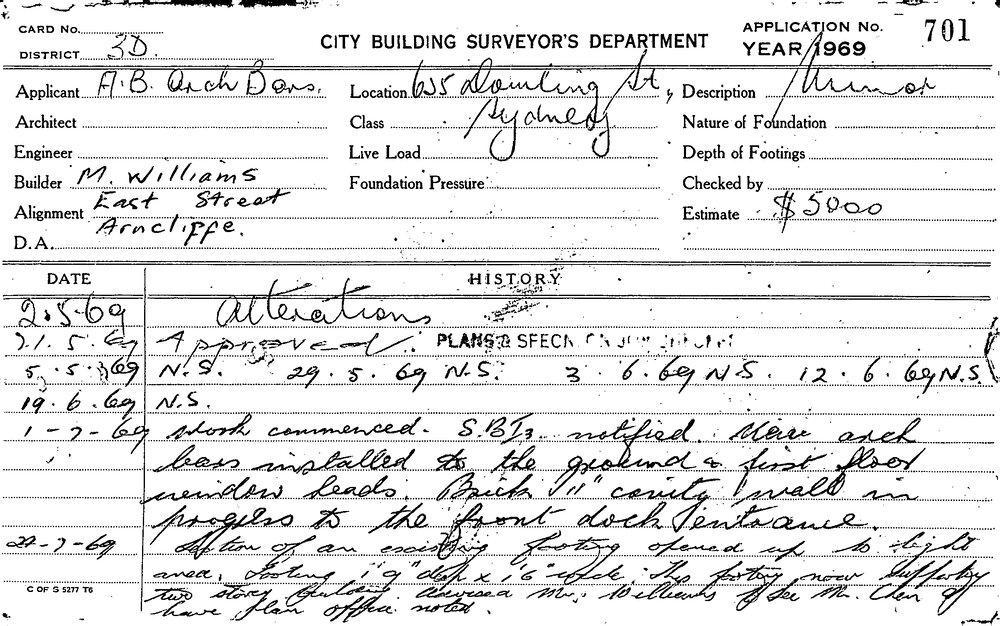 CARD No.
DISTRICT 3D.
CITY BUILDING SURVEYOR'S DEPARTMENT
APPLICATION No. 701
YEAR 1969
Applicant A.B. Arch Bars.
Location 655 Dowling St,
Sydney
Description Minor
Architect
Class
Nature of Foundation
Engineer
Live Load
Depth of Footings
Builder M. Williams
Foundation Pressure
Checked by
East Street
Alignment
Arncliffe.
Estimate $5000
D.A.
DATE HISTORY
2.5.69 Alterations
21.5.69 Approved. PLANS & SPECN. ON JOB
5.5.69 N.S. 29.5.69 N.S. 3.6.69 N.S. 12.6.69 N.S.
19.6.69 N.S.
1-7-69 Work commenced. notified. New arch
bars installed to the ground & first floor
window heads. Brick 11" cavity wall in
progress to the front dock entrance.
-7-69 Section of an existing footing opened up to light
area. Footing 9" deep x 1'6" wide. This footing now supporting
two story building. Advised Mr. Williams to see Mr. &
have plan office noted.
C OF S 5277 T6